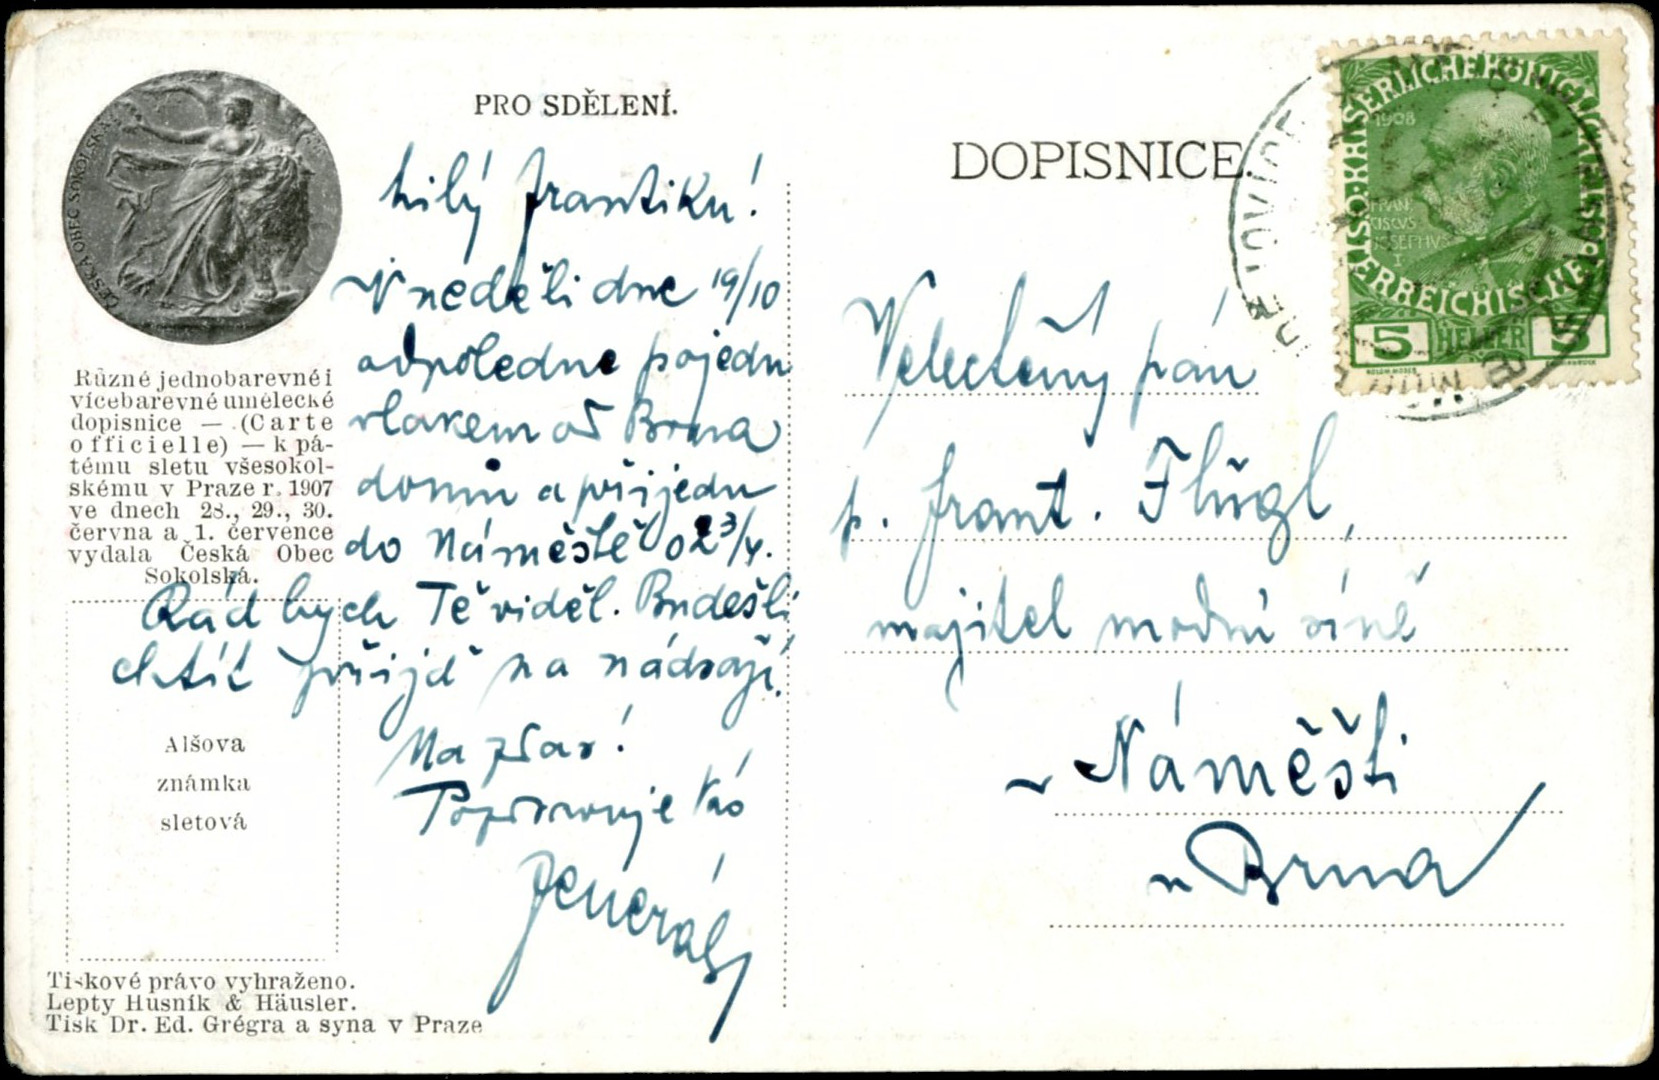 ČESKÁ OBEC SOKOLSKÁ
PRO SDĚLENÍ.
DOPISNICE.
milý Frantíku!
V neděli dne 19/10
odpoledne pojedu
vlakem od Brna
domů a přijedu
do Náměště o 2 3/4.
Rád bych Tě viděl. Budeš li
chtít přijď na nádraží.
Na zdar!
Pozdravuje Vás
Generál
Různé jednobarevné i
vícebarevné umělecké
dopisnice — (Carte
officielle) — k pá-
tému sletu všesokol-
skému v Praze r. 1907
ve dnech 28., 29., 30.
června a 1. července
vydala Česká Obec
Sokolská.
Alšova
známka
sletová
Tiskové právo vyhraženo.
Lepty Husník & Häusler.
Tisk Dr. Ed. Grégra a syna v Praze
Velectěný pán
p. Frant. Flügl,
majitel modní síně
v Náměšti
u Brna
KAISERLICHE KÖNIGLICHE
ÖSTERREICHISCHE
1908
FRAN
CISCUS
JOSEPHVS
I
5 HELLER 5